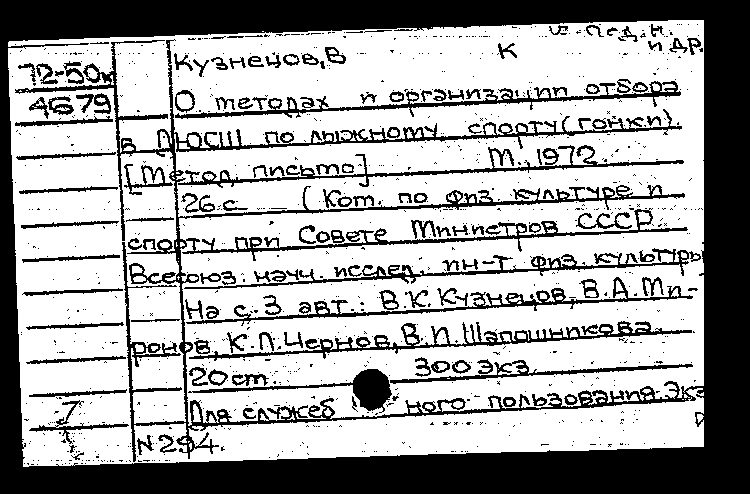 и др.
72-50к Кузнецов, В К
4679 О методах и организации отбора
в ДЮСШ по лыжному спорту (гонки).
[Метод. письмо] М., 1972.
26 с (Ком. по физ культуре и
спорту при Совете Министров СССР
Всесоюз. науч. исслед. ин-т. физ. культуры
На с. 3 авт.: В.К. Кузнецов, В.А. Ми-
ронов, К.Л. Чернов, В.П. Шапошникова.
20 ст. 300 экз.
7 Для служеб ного пользования. Экз
N 294.